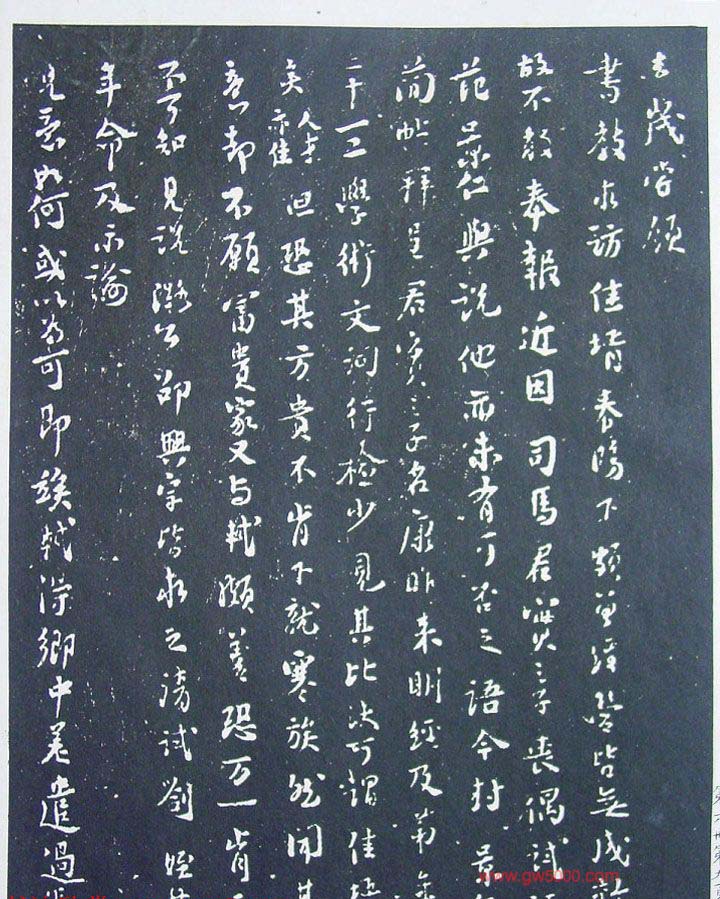 去歲常領
書教求訪佳壻春陽下類曾經營皆無成
故不敢奉報近因司馬君實之子喪偶試
范景仁與說他亦未有可否之語今封景仁
簡帖拜呈君實之子名康昨來明經及第年
二十一二學術文詞行檢少見其比決可謂佳壻
矣人才亦佳但恐其方貴不肯下就寒族然聞其
意却不願富貴家又与軾頗善恐万一肯
不可知見說潞公邵興宗皆求之濤試劉姪
年命及示諭
見意如何或以為可即俟軾得鄉中差遣過
www.gw5000.com